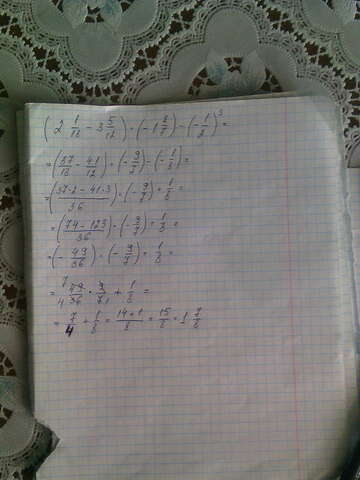 (2 1/18 - 3 5/12) · (-1 2/7) - (-1/2)^3 =
= (37/18 - 41/12) · (-9/7) - (-1/8) =
= ((37·2 - 41·3)/36) · (-9/7) + 1/8 =
= ((74 - 123)/36) · (-9/7) + 1/8 =
= (-49/36) · (-9/7) + 1/8 =
= 49/36 · 9/7 + 1/8 =
= 7/4 + 1/8 = (14+1)/8 = 15/8 = 1 7/8